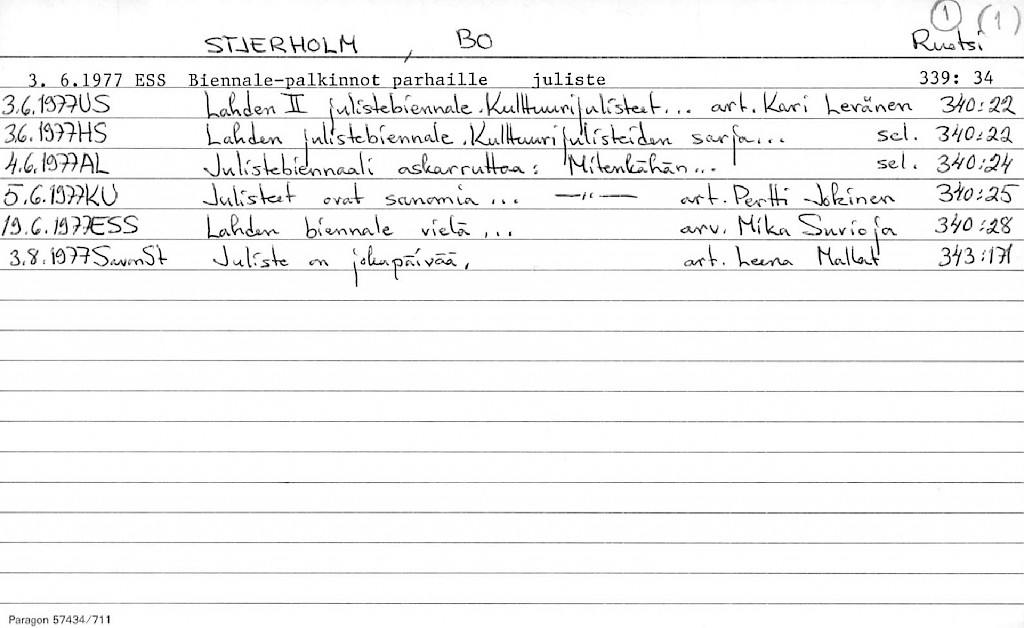 1 (1)
STJERHOLM, BO Ruotsi
3. 6.1977 ESS Biennale-palkinnot parhaille juliste 339: 34
3.6.1977US Lahden II julistebiennale. Kulttuurijulisteet... art. Kari Leränen 340:22
3.6.1977HS Lahden julistebiennale. Kulttuurijulisteiden sarja... sel. 340:22
4.6.1977AL Julistebiennaali askarruttaa: Mitenkähän... sel. 340:24
5.6.1977KU Julisteet ovat sanomia... —"— art. Pertti Jokinen 340:25
19.6.1977ESS Lahden biennale vielä ... arv. Mika Surioja 340:28
3.8.1977SavonSt Juliste on jokapäivää, art. Leena Mallat 343:171
Paragon 57434/711